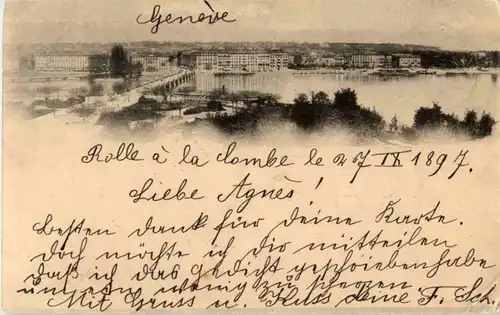 Genève
Rolle à la Combe le 27 IX 1897.
Liebe Agnès!
besten dank für deine Karte.
doch möchte ich dir mitteilen
daß ich das Gedicht geschrieben habe
um ein wenig zu
Mit Gruss u. Kuss deine F. Sch.